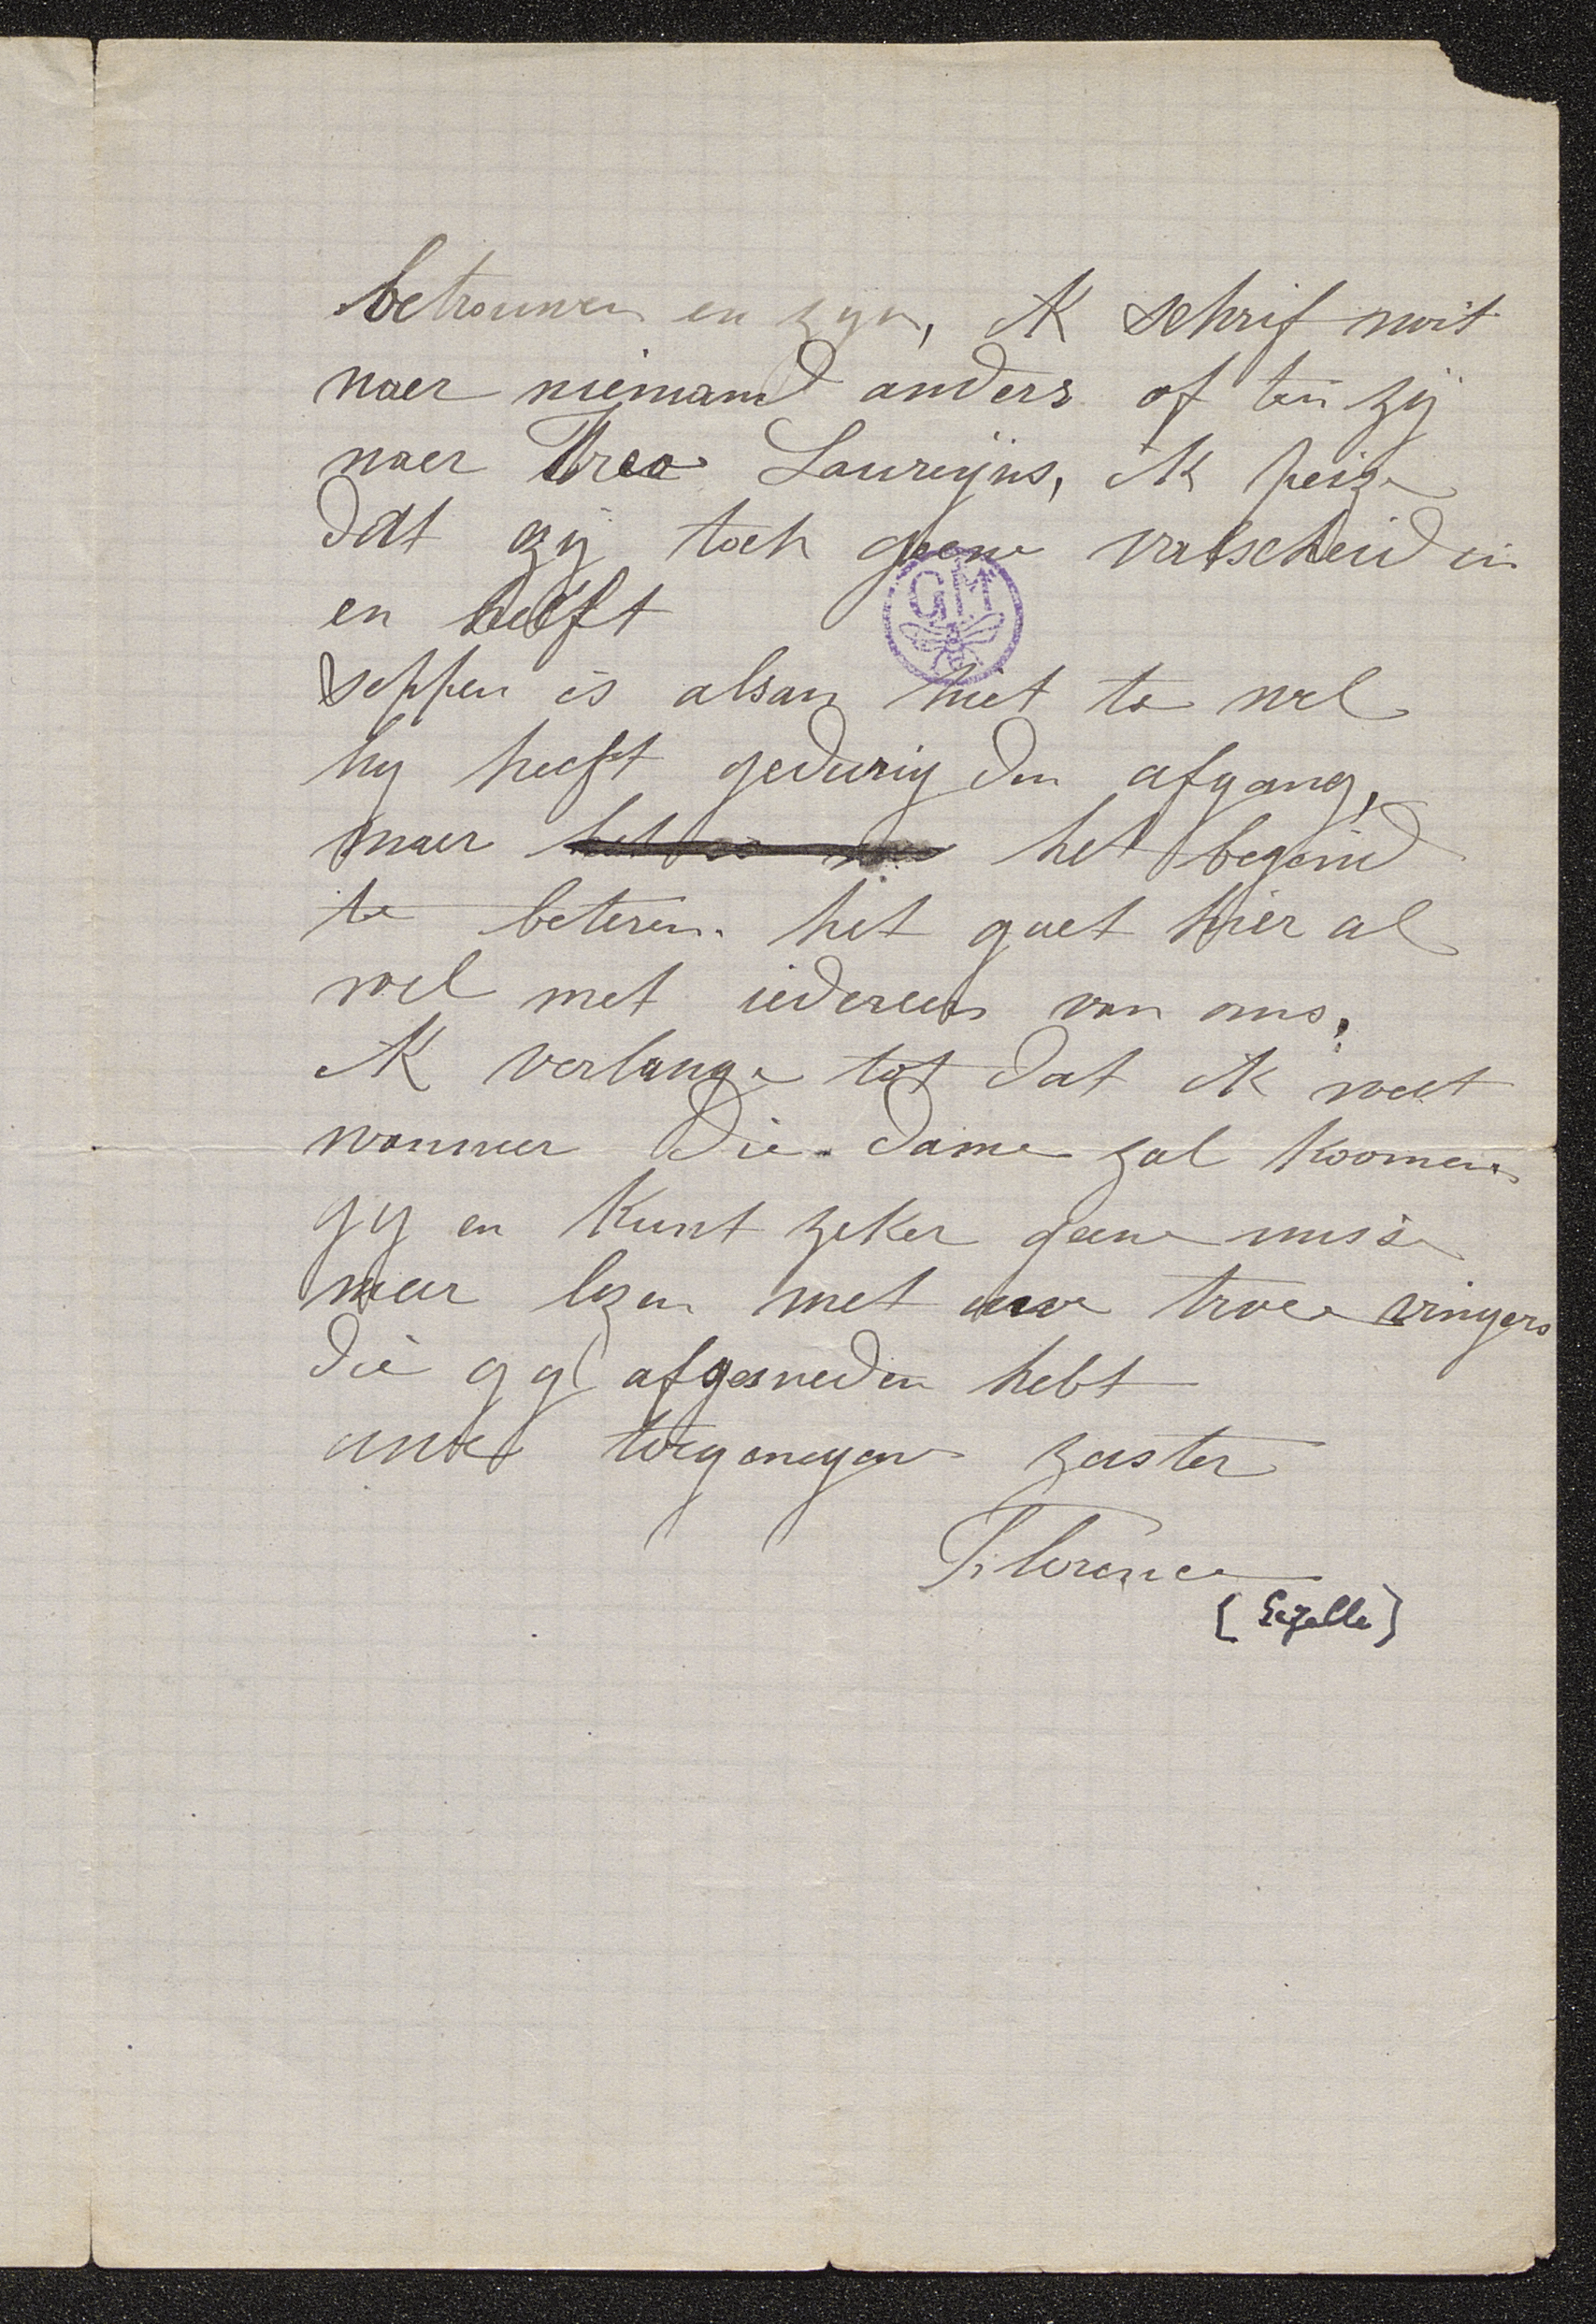 betrouwen en zyn, ik schrif noit
naer niemand anders of ten zij
naer Laureijns, ik peize
dat gij toch geene valscheid in
en heeft
seppen is alsan niet te wel
hy heeft gedurig den afgang,
maer het begend
te beteren. het gaet hier al
wel met iedereen van ons,
ik verlange tot dat ik weet
wanneer die dame zal koomen
gy en kunt zeker geene misse
meer lezen met uwe twee vingers
die gy afgesneden hebt
uwe toegenegen zuster
Florence
[Gezelle]
GM